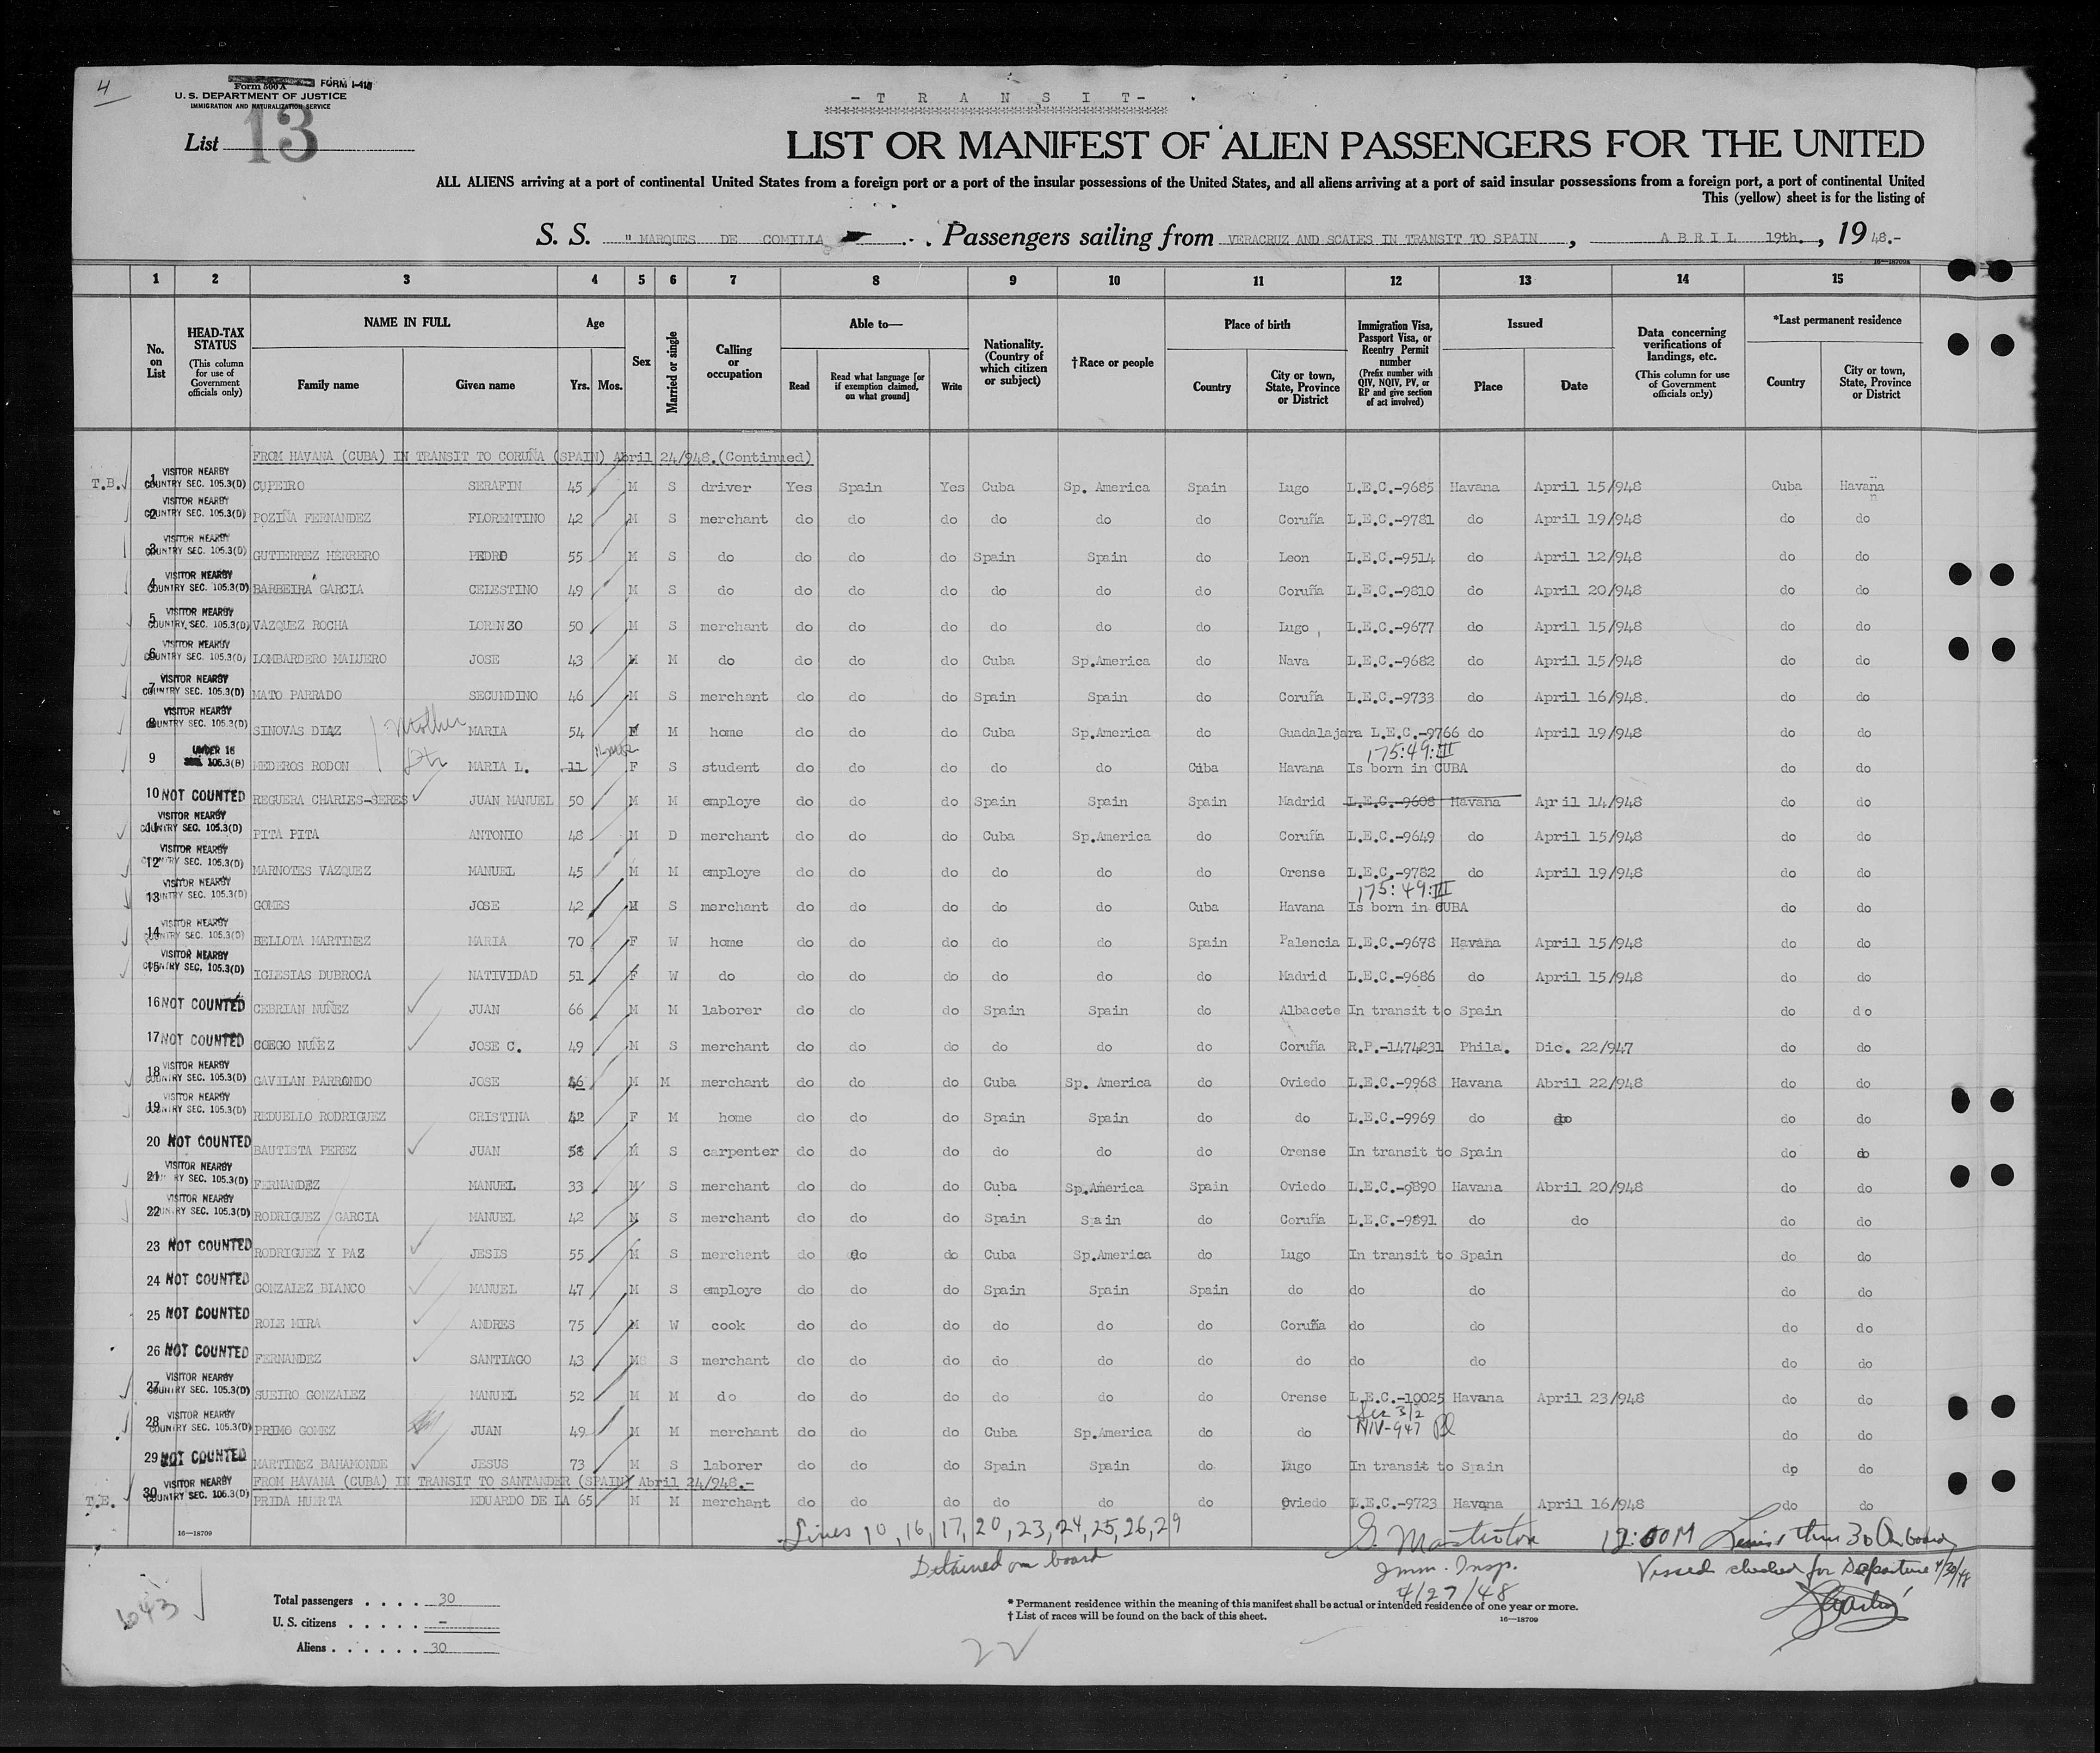 4
Form 500 A FORM I-418
U. S. DEPARTMENT OF JUSTICE
IMMIGRATION AND NATURALIZATION SERVICE
- T R A N S I T -
List 13
LIST OR MANIFEST OF ALIEN PASSENGERS FOR THE UNITED
ALL ALIENS arriving at a port of continental United States from a foreign port or a port of the insular possessions of the United States, and all aliens arriving at a port of said insular possessions from a foreign port, a port of continental United
This (yellow) sheet is for the listing of
S. S. "MARQUES DE COMILLA Passengers sailing from VERACRUZ AND SCALES IN TRANSIT TO SPAIN , ABRIL 19th. , 19 48.-
16—18709
1 2 3 4 5 6 7 8 9 10 11 12 13 14 15
No. on List
HEAD-TAX STATUS (This column for use of Government officials only)
NAME IN FULL Family name Given name
Age Yrs. Mos.
Sex
Married or single
Calling or occupation
Able to— Read Read what language [or if exemption claimed, on what ground] Write
Nationality. (Country of which citizen or subject)
†Race or people
Place of birth Country City or town, State, Province or District
Immigration Visa, Passport Visa, or Reentry Permit number (Prefix number with QIV, NQIV, PV, or RP and give section of act involved)
Issued Place Date
Data concerning verifications of landings, etc. (This column for use of Government officials only)
*Last permanent residence Country City or town, State, Province or District
FROM HAVANA (CUBA) IN TRANSIT TO CORUÑA (SPAIN) Abril 24/948.(Continued)
T.B. 1 VISITOR NEARBY COUNTRY SEC. 105.3(D) CUPEIRO SERAFIN 45 M S driver Yes Spain Yes Cuba Sp. America Spain Lugo L.E.C.-9685 Havana April 15/948 Cuba Havana
2 VISITOR NEARBY COUNTRY SEC. 105.3(D) POZIÑA FERNANDEZ FLORENTINO 42 M S merchant do do do do do do Coruña L.E.C.-9781 do April 19/948 do do
3 VISITOR NEARBY COUNTRY SEC. 105.3(D) GUTIERREZ HERRERO PEDRO 55 M S do do do do Spain Spain do Leon L.E.C.-9514 do April 12/948 do do
4 VISITOR NEARBY COUNTRY SEC. 105.3(D) BARBEIRA GARCIA CELESTINO 49 M S do do do do do do do Coruña L.E.C.-9810 do April 20/948 do do
5 VISITOR NEARBY COUNTRY SEC. 105.3(D) VAZQUEZ ROCHA LORENZO 50 M S merchant do do do do do do Lugo L.E.C.-9677 do April 15/948 do do
6 VISITOR NEARBY COUNTRY SEC. 105.3(D) LOMBARDERO MALUERO JOSE 43 M M do do do do Cuba Sp.America do Nava L.E.C.-9682 do April 15/948 do do
7 VISITOR NEARBY COUNTRY SEC. 105.3(D) MATO PARRADO SECUNDINO 46 M S merchant do do do Spain Spain do Coruña L.E.C.-9733 do April 16/948. do do
8 VISITOR NEARBY COUNTRY SEC. 105.3(D) SINOVAS DIAZ Mother MARIA 54 F M home do do do Cuba Sp.America do Guadalajara L.E.C.-9766 do April 19/948 do do
9 UNDER 16 105.3(B) MEDEROS RODON MARIA L. 11 F S student do do do do do Cuba Havana 175:49:III Is born in CUBA do do
10 NOT COUNTED REGUERA CHARLES-SERES JUAN MANUEL 50 M M employe do do do Spain Spain Spain Madrid L.E.C.-9608 Havana April 14/948 do do
11 VISITOR NEARBY COUNTRY SEC. 105.3(D) PITA PITA ANTONIO 48 M D merchant do do do Cuba Sp.America do Coruña L.E.C.-9649 do April 15/948 do do
12 VISITOR NEARBY COUNTRY SEC. 105.3(D) MARNOTES VAZQUEZ MANUEL 45 M M employe do do do do do do Orense L.E.C.-9782 do April 19/948 do do
13 VISITOR NEARBY COUNTRY SEC. 105.3(D) GOMES JOSE 42 M S merchant do do do do do Cuba Havana 175:49:III Is born in CUBA do do
14 VISITOR NEARBY COUNTRY SEC. 105.3(D) BELLOTA MARTINEZ MARIA 70 F W home do do do do do Spain Palencia L.E.C.-9678 Havana April 15/948 do do
15 VISITOR NEARBY COUNTRY SEC. 105.3(D) IGLESIAS DUBROCA NATIVIDAD 51 F W do do do do do do do Madrid L.E.C.-9686 do April 15/948 do do
16 NOT COUNTED CEBRIAN NUÑEZ JUAN 66 M M laborer do do do Spain Spain do Albacete In transit to Spain do do
17 NOT COUNTED COEGO NUÑEZ JOSE C. 49 M S merchant do do do do do do Coruña R.P.-1474231 Phila. Dic. 22/947 do do
18 VISITOR NEARBY COUNTRY SEC. 105.3(D) GAVILAN PARRONDO JOSE 46 M M merchant do do do Cuba Sp. America do Oviedo L.E.C.-9968 Havana Abril 22/948 do do
19 VISITOR NEARBY COUNTRY SEC. 105.3(D) REDUELLO RODRIGUEZ CRISTINA 42 F M home do do do Spain Spain do do L.E.C.-9969 do do do do
20 NOT COUNTED BAUTISTA PEREZ JUAN 58 M S carpenter do do do do do do Orense In transit to Spain do do
21 VISITOR NEARBY COUNTRY SEC. 105.3(D) FERNANDEZ MANUEL 33 M S merchant do do do Cuba Sp.America Spain Oviedo L.E.C.-9890 Havana Abril 20/948 do do
22 VISITOR NEARBY COUNTRY SEC. 105.3(D) RODRIGUEZ GARCIA MANUEL 42 M S merchant do do do Spain Spain do Coruña L.E.C.-9891 do do do do
23 NOT COUNTED RODRIGUEZ Y PAZ JESIS 55 M S merchant do do do Cuba Sp.America do Lugo In transit to Spain do do
24 NOT COUNTED GONZALEZ BLANCO MANUEL 47 M S employe do do do Spain Spain Spain do do do do do
25 NOT COUNTED ROLE MIRA ANDRES 75 M W cook do do do do do do Coruña do do do do
26 NOT COUNTED FERNANDEZ SANTIAGO 43 M S merchant do do do do do do do do do do do
27 VISITOR NEARBY COUNTRY SEC. 105.3(D) SUEIRO GONZALEZ MANUEL 52 M M do do do do do do do Orense L.E.C.-10025 Havana April 23/948 do do
28 VISITOR NEARBY COUNTRY SEC. 105.3(D) PRIMO GOMEZ JUAN 49 M M merchant do do do Cuba Sp.America do do Sec 3/2 NIV-947 do do
29 NOT COUNTED MARTINEZ BAHAMONDE JESUS 73 M S laborer do do do Spain Spain do Lugo In transit to Spain do do
FROM HAVANA (CUBA) IN TRANSIT TO SANTANDER (SPAIN) Abril 24/948.-
T.E. 30 VISITOR NEARBY COUNTRY SEC. 105.3(D) PRIDA HUERTA EDUARDO DE LA 65 M M merchant do do do do do do Oviedo L.E.C.-9723 Havana April 16/948 do do
16—18709
Lines 10, 16, 17, 20, 23, 24, 25, 26, 29
Detained on board
Imm. Insp.
4/27/48
12:00M Lines 1 thru 30 On board
Vessel checked for Departure 4/30/48
643
Total passengers . . . . 30
U. S. citizens . . . . . . -
Aliens . . . . . . 30
* Permanent residence within the meaning of this manifest shall be actual or intended residence of one year or more.
† List of races will be found on the back of this sheet.
16—18709
22